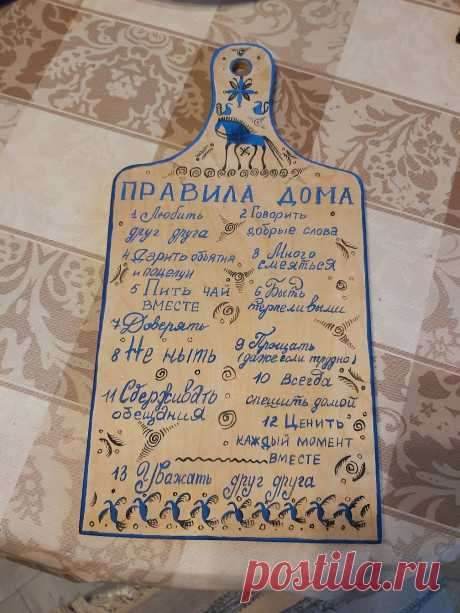 ПРАВИЛА ДОМА
1 Любить
друг друга
2 Говорить
добрые слова
4 Дарить объятия
и поцелуи
3 Много
смеяться
5 ПИТЬ ЧАЙ
ВМЕСТЕ
6 Быть
терпеливыми
7 Доверять
8 Не ныть
9 Прощать
(даже если трудно)
10 Всегда
спешить домой
11 Сберживать
обещания
12 ЦЕНИТЬ
КАЖДЫЙ МОМЕНТ
ВМЕСТЕ
13 Уважать друг друга
postila.ru